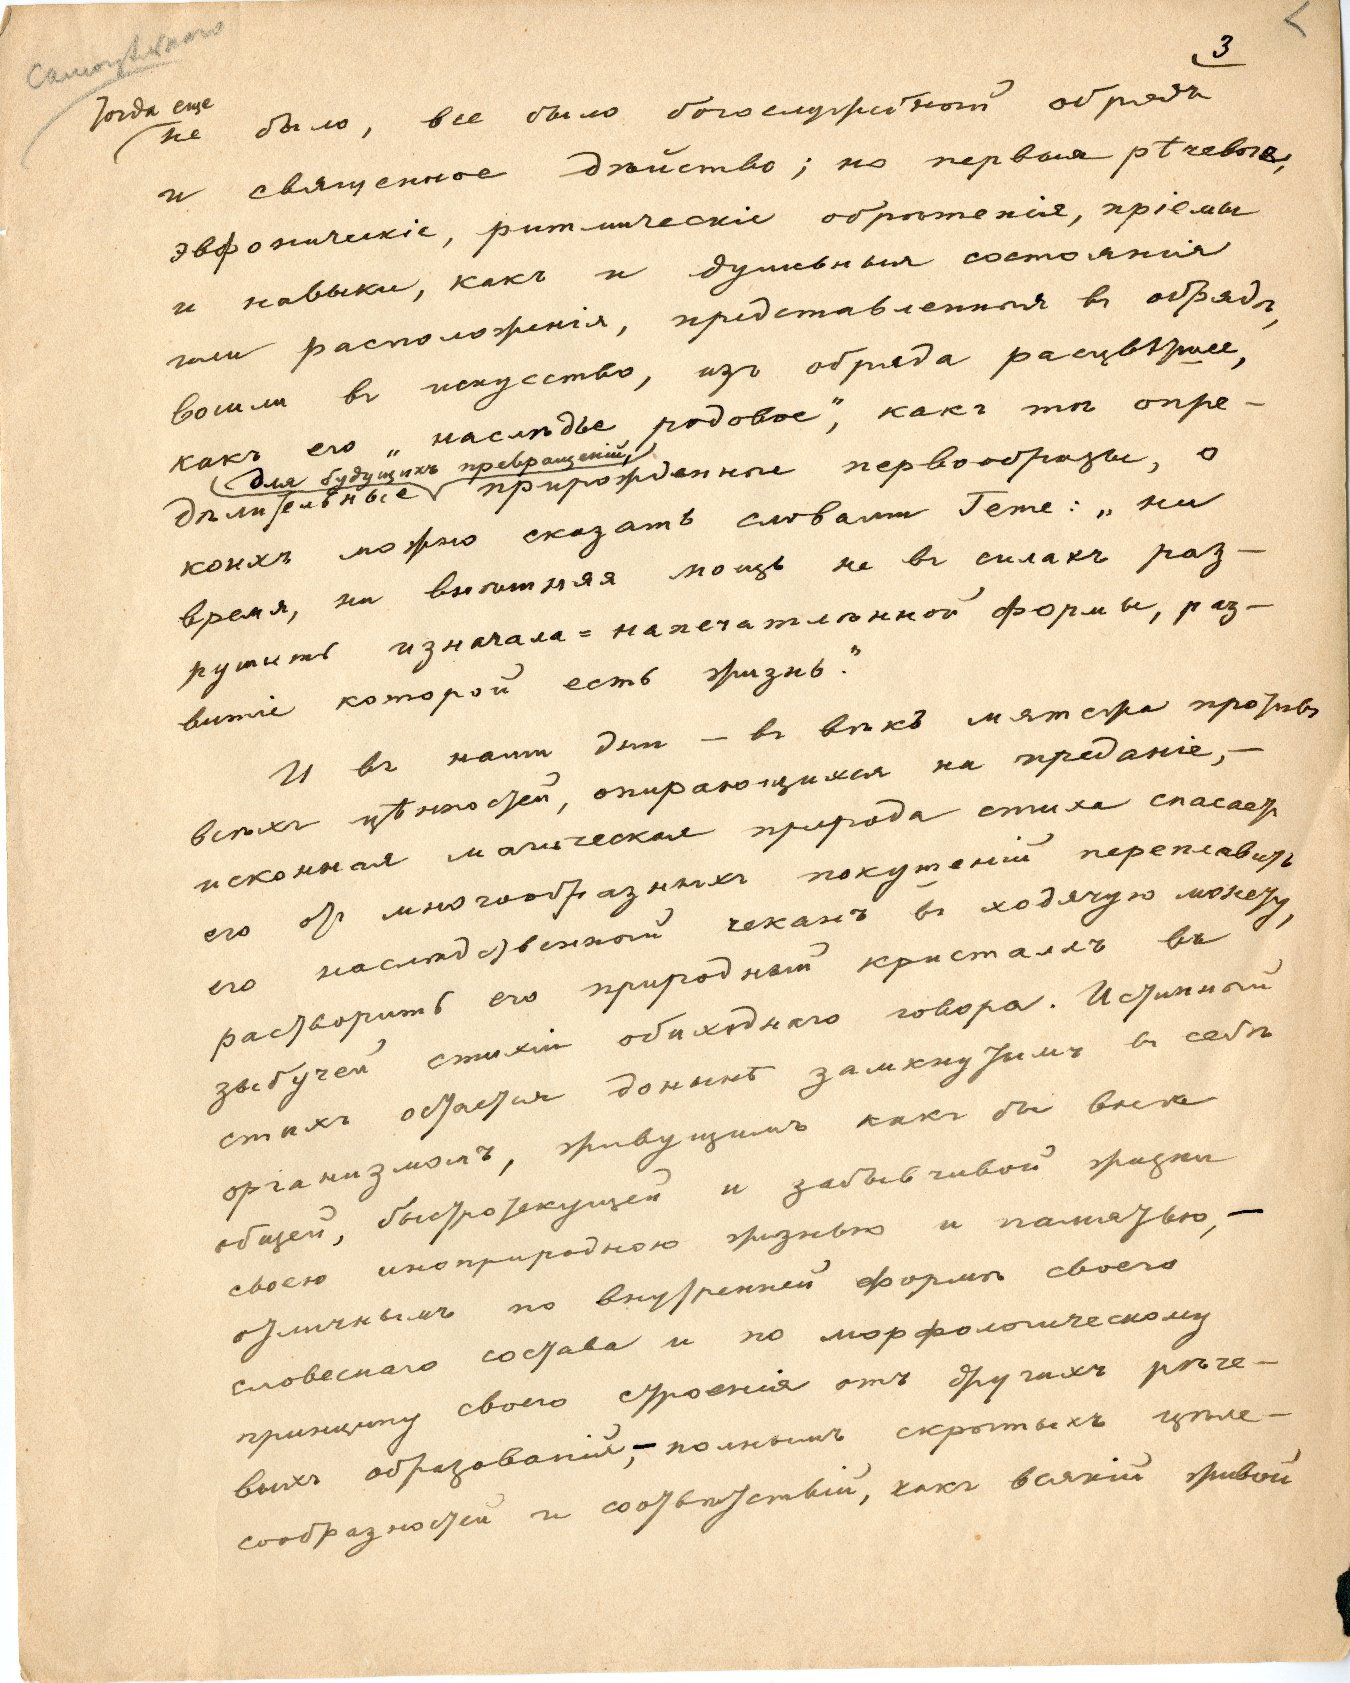 Самоцѣльнаго
3
Тогда еще
не было, все было богослужебный обрядъ
и священное дѣйство; но первыя рѣчевыя,
эвфоническіе, ритмическіе обрѣтенія, пріемы
и навыки, какъ и душевныя состоянія
или расположенія, представленныя въ обрядѣ,
вошли въ искусство, изъ обряда расцвѣтшее,
какъ его „наслѣдье родовое", какъ тѣ опре-
для будущихъ превращеній,
дѣлительные прирожденные первообразы, о
коихъ можно сказать словами Гете: „ни
время, ни внѣшняя мощь не въ силахъ раз-
рушить изначала=напечатлѣнной формы, раз-
витіе которой есть жизнь."
И въ наши дни – въ вѣкъ мятежа противъ
всѣхъ цѣнностей, опирающихся на преданіе, –
исконная магическая природа стиха спасаетъ
его отъ многообразныхъ покушеній переплавить
его наслѣдственный чеканъ въ ходячую монету,
растворить его природный кристаллъ въ
зыбучей стихіи обиходнаго говора. Истинный
стихъ остается донынѣ замкнутымъ въ себѣ
организмомъ, живущимъ какъ бы внѣ
общей, быстротекущей и забывчивой жизни
своею иноприродною жизнью и памятью, –
отличнымъ по внутренней формѣ своего
словеснаго состава и по морфологическому
принципу своего строенія отъ другихъ рѣче-
выхъ образованій, – полнымъ скрытыхъ цѣле-
сообразностей и соотвѣтствій, какъ всякій живой